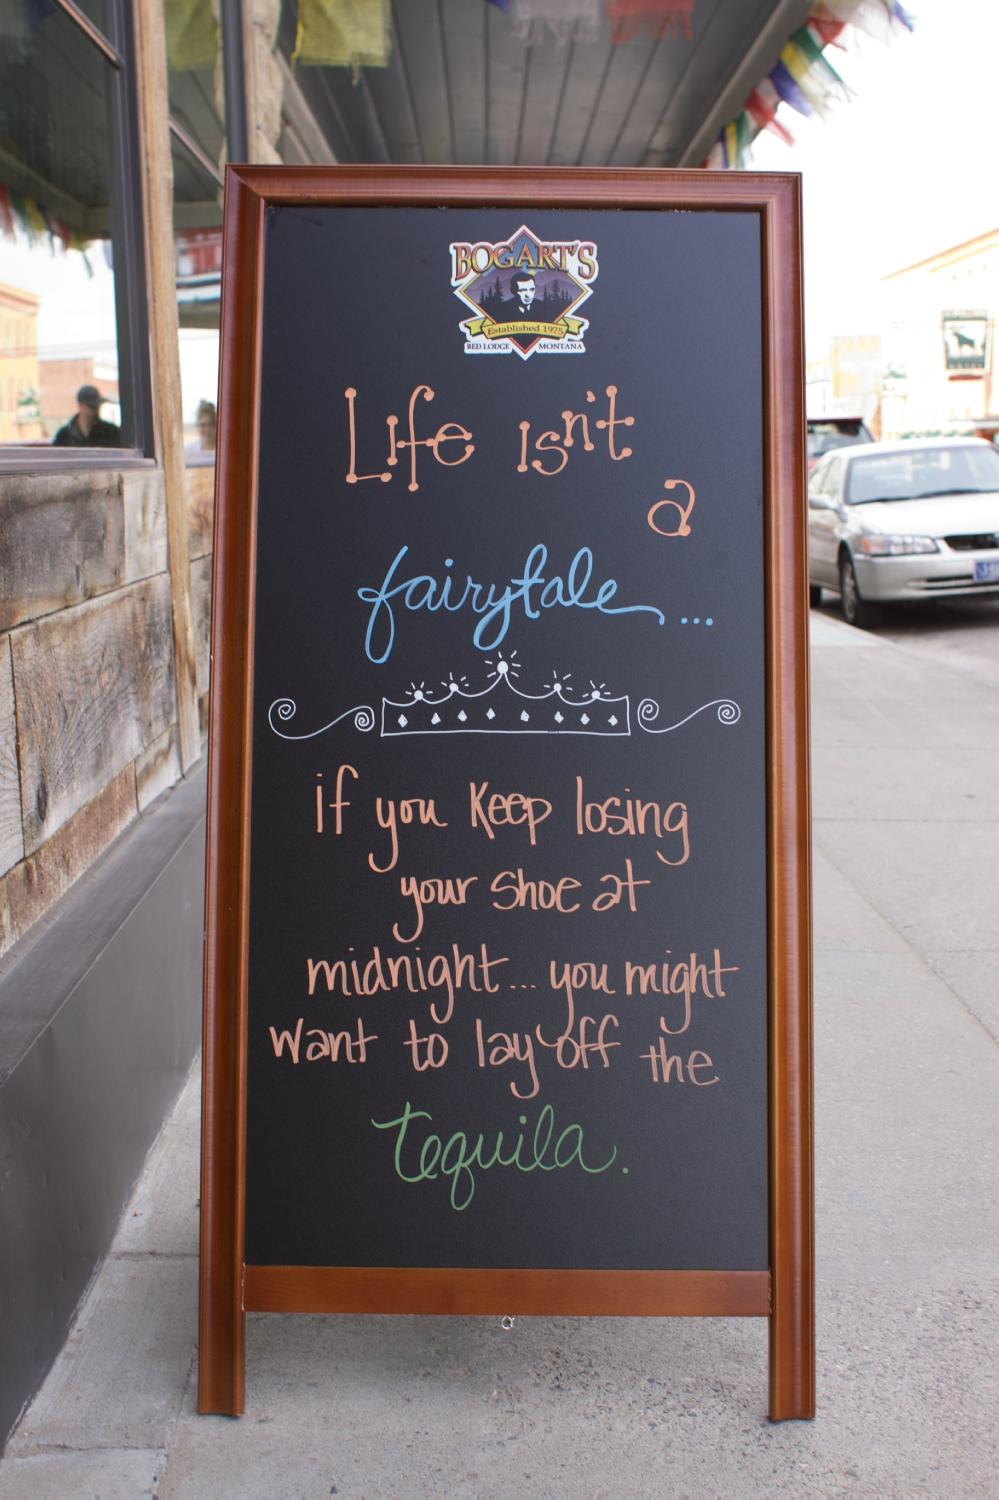 BOGART'S
Established 1975
RED LODGE MONTANA
Life isn't
a
fairytale...
if you keep losing
your shoe at
midnight... you might
want to lay off the
tequila.